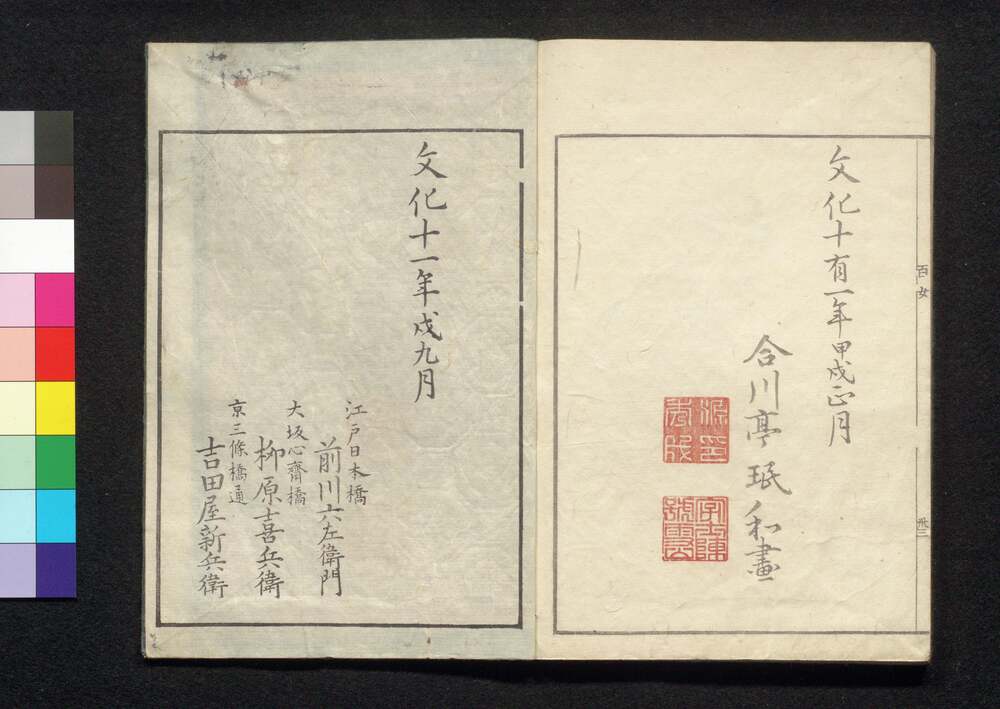 文化十有一年甲戌正月
合川亭珉和畫
百女
卅三
文化十一年戌九月
江戸日本橋
前川六左衛門
大坂心齋橋
柳原喜兵衛
京三條橋通
吉田屋新兵衛